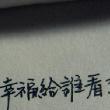 幸福給誰看